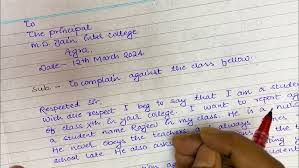 To
The principal
M.D. Jain, Intel college
Agra,
Date- 12th March 2024
Sub:- To complain against the class fellow.
Respected Sir.
With due respect I beg to say that I am a student
of class Xth in your college. I want to report
a student name Rajeev in my class. He is a
He never obeys the teachers always
school. He also asks